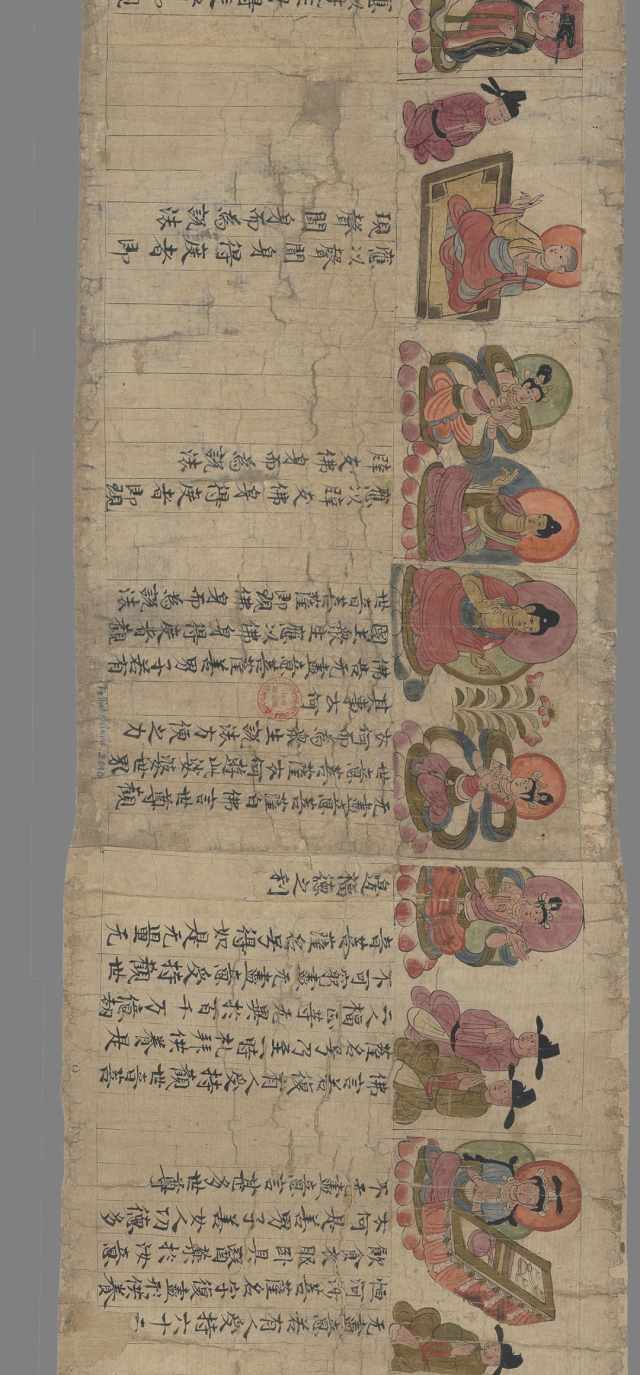 无盡意若有人受持六十二
恒河沙菩薩名字復盡形供養
飲食衣服卧具醫藥於汝意
云何是善男子善女人功德多
不无盡意言甚多世尊
佛言若復有人受持觀世音菩
薩名号乃至一時礼拜供養是
二人福正等无異於百千万億劫
不可窮盡无盡意受持觀世
音菩薩名号得如是无量无
邊福德之利
无盡意菩薩白佛言世尊觀
世音菩薩云何遊此娑婆世界
云何而為衆生說法方便之力
其事云何
佛告无盡意菩薩善男子若有
國土衆生應以佛身得度者觀
世音菩薩即現佛身而為說法
應以辟支佛身得度者即現
辟支佛身而為說法
應以聲聞身得度者即
現聲聞身而為說法
Pelliot chinois 2010